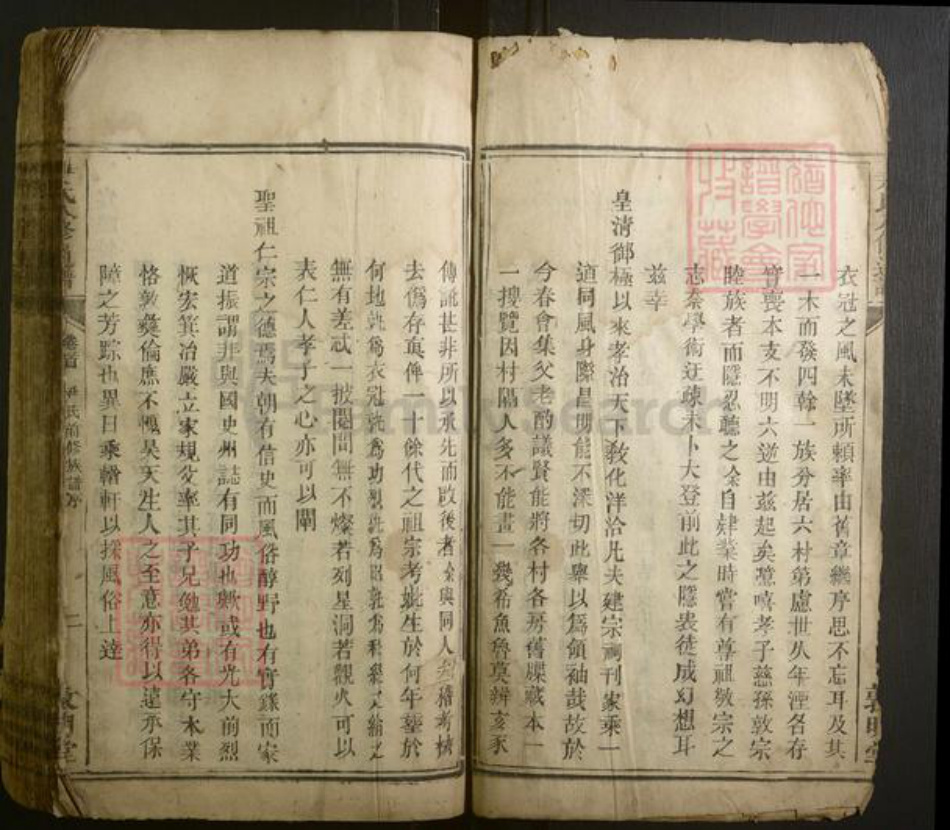 衣冠之風未墜所賴率由舊章繼序思不忘耳及其
一木而發四幹一族分居六村第慮世久年湮各存
實喪本支不明六逆由茲起矣噫嘻孝子慈孫敦宗
睦族者而隱忍聽之余自肄業時嘗有尊祖敬宗之
志柰學術迂疎未卜大登前此之隱衷徒成幻想耳
茲幸
皇清御極以來孝治天下教化洋洽凡夫建宗祠刊家乘一
道同風身際昌明能不深切此舉以為領袖哉故於
今春會集父老酌議賢能將各村各房舊牒藏本一
一搜覽因村隔人多不能畫一幾希魚魯莫辨亥豕
傳訛甚非所以承先而啟後者余與同人稽考
去僞存真俾一十餘代之祖宗考妣生於何年塟於
何地孰為衣冠孰為功孰為孰為科
無有差忒一披閱間無不燦若列星洞若觀火可以
表仁人孝子之心亦可以闡
聖祖仁宗之德焉夫朝有信史而風俗醇野也有實錄而家
道振謂非與國史州誌有同功也歟或有光大前烈
恢宏箕冶嚴立家規父率其子兄勉其弟各守本業
恪敦彝倫庶不愧昊天生人之至意亦得以遠承保
障之芳踪也異日乘輶軒以採風俗上達
卷首
尹氏前修族譜序
二
敦明堂
敦明堂
FamilySearch